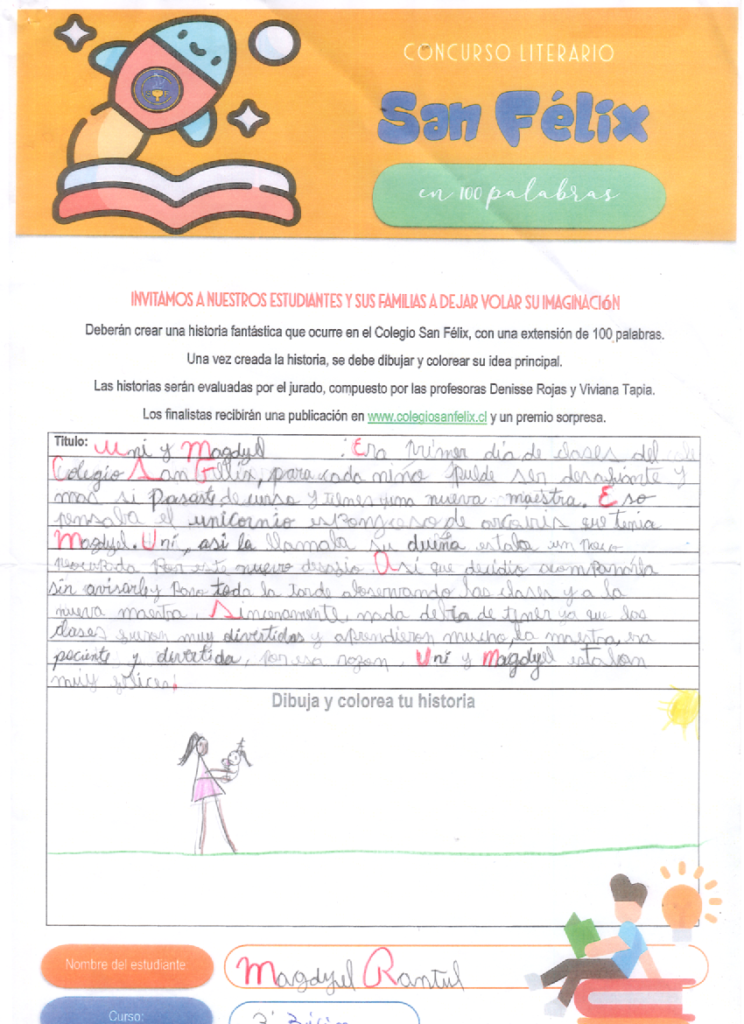 CONCURSO LITERARIO
San Félix
en 100 palabras
INVITAMOS A NUESTROS ESTUDIANTES Y SUS FAMILIAS A DEJAR VOLAR SU IMAGINACIÓN
Deberán crear una historia fantástica que ocurre en el Colegio San Félix, con una extensión de 100 palabras.
Una vez creada la historia, se debe dibujar y colorear su idea principal.
Las historias serán evaluadas por el jurado, compuesto por las profesoras Denisse Rojas y Viviana Tapia.
Los finalistas recibirán una publicación en www.colegiosanfelix.cl y un premio sorpresa.
Título: Uni y Magdyel : Era primer día de clases del
Colegio San Félix, para cada niño puede ser desafiante y
mas si pasaste de curso y tienes una nueva maestra. Eso
pensaba el unicornio esponjoso de que tenia
Magdyel. Uni, así la llamaba su dueña estaba un poco
preocupada por este nuevo desafio. Así que decidio acompañarla
sin avisarle y paso toda la tarde observando las clases y a la
nueva maestra. Sinceramente, nada debia de temer ya que las
clases fueron muy divertidas y aprendieron mucho, la maestra era
paciente y divertida, por esa razon. Uni y Magdyel estaban
muy felices!
Dibuja y colorea tu historia
Nombre del estudiante: Magdyel Rantul
Curso: Básico